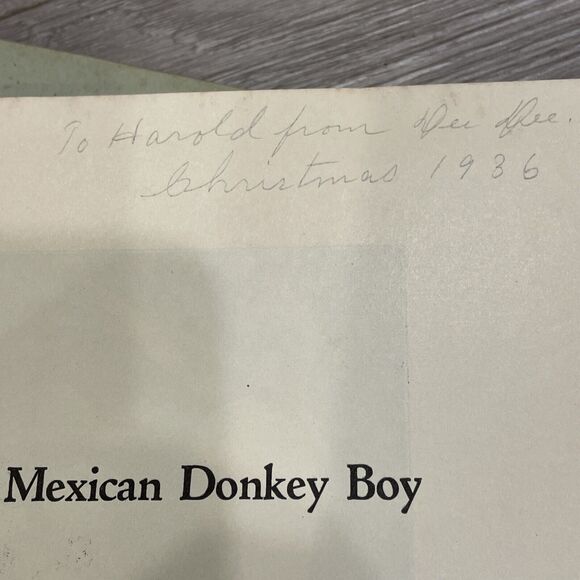 To Harold from Dee Dee.
Christmas 1936
Mexican Donkey Boy